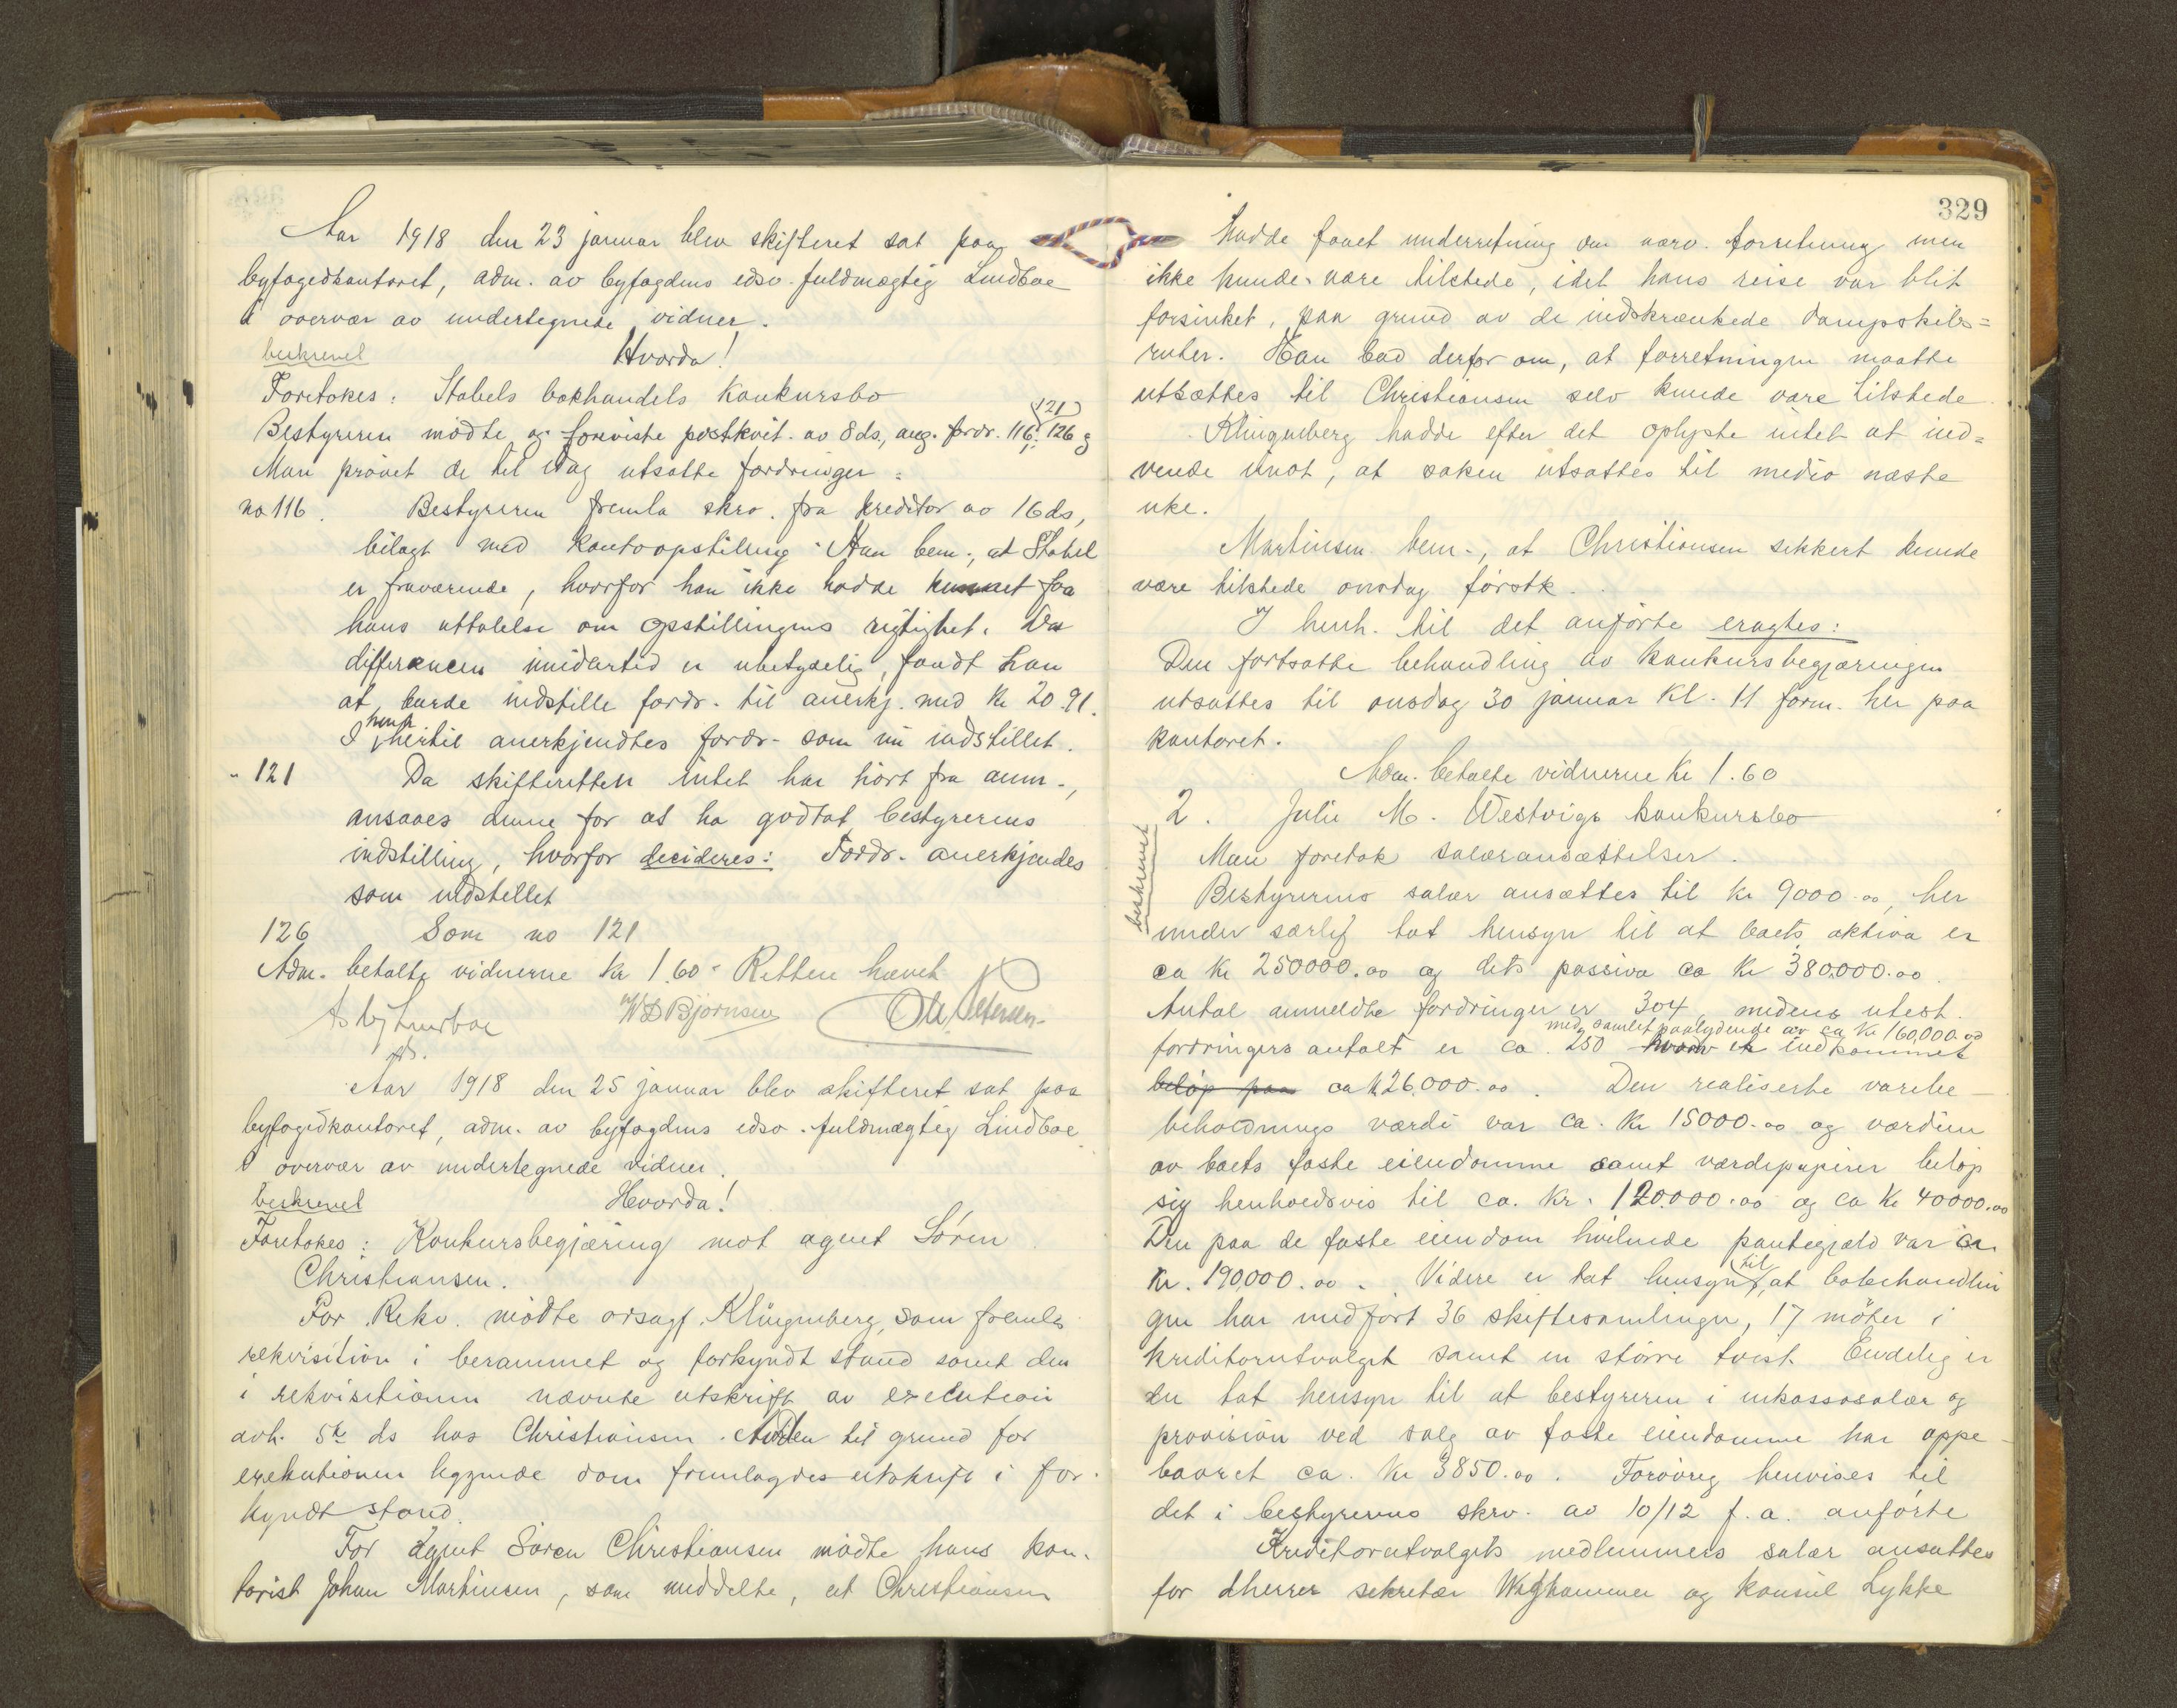 Aar 1918 den 23 januar blev skifteret sat paa
byfogedkontoret, adm. av byfogdens edsv. fuldmægtig Lindboe
i overvær av undertegnede vidner.
beskrevet Hvorda!
Foretokes: Stabels bokhandels konkursbo
121
Bestyreren mødte og foreviste postkvit. av 8 ds, ang. fordr. 116, 126 g
Man prøvet de til idag utsatte fordringer:
no 116. Bestyreren fremla skrv. fra kreditor av 16 ds,
bilagt med kontoopstilling. Han bem., at Stabel
er fraværende, hvorfor han ikke hadde kunnet faa
hans uttalelse om opstillingens rigtighet. Da
differencen imidlertid er ubetydelig, fandt han
at burde indstille fordr. til anerkj. med kr 20.91.
henh
I hertil anerkjendtes fordr. som nu indstillet.
" 121 Da skifteretten intet har hørt fra anm.,
ansaaes denne for at ha godtat bestyrerens
indstilling, hvorfor decideres: Fordr. anerkjendes
som indstillet
126 Som no 121
Adm. betalte vidnerne kr 1.60. Retten hævet
Asbj Lindboe W D Bjørnsen Ole Petersen
fst.
Aar 1918 den 25 januar blev skifteret sat paa
byfogedkontoret, adm. av byfogdens edsv. fuldmægtig Lindboe
i overvær av undertegnede vidner.
beskrevet Hvorda!
Foretokes: Konkursbegjæring mot agent Søren
Christiansen.
For Rekv. mødte orsagf. Klingenberg, som fremla
rekvisition i berammet og forkyndt stand samt den
i rekvisitionen nævnte utskrift av execution
avh. 5te ds hos Christiansen. Av den til grund for
exekutionen liggende dom fremlagdes utskrift i for-
kyndt stand.
For agent Søren Christiansen mødte hans kon-
torist Johan Martinsen, som meddelte, at Christiansen
329
hadde faaet underretning om nærv. forretning men
ikke kunde være tilstede, idet hans reise var blit
forsinket, paa grund av de indskrænkede dampskibs=
ruter. Han bad derfor om, at forretningen maatte
utsættes til Christiansen selv kunde være tilstede.
Klingenberg hadde efter det oplyste intet at ind=
vende imot, at saken utsattes til medio næste
uke.
Martinsen bem., at Christiansen sikkert kunde
være tilstede onsdag førstk.
I henh. til det anførte eragtes:
Den fortsatte behandling av konkursbegjæringen
utsattes til onsdag 30 januar kl. 11 form. her paa
kontoret.
Adm. betalte vidnerne kr 1.60
2. Julie M. Westvigs konkursbo
beskrevet
Man foretok salæransættelser.
Bestyrerens salær ansættes til kr 9000.00, her
under særlig tat hensyn til at boets aktiva er
ca kr 250000.00 og dets passiva ca kr 380.000.00.
Antal anmeldte fordringer er 304, medens utest.
med samlet paalydende av ca kr 160,000.00
fordringers antalt er ca. 250 hvorav er indkommet
beløp paa ca kr 26.000.00. Den realiserte varebe-
beholdnings værdi var ca. kr 15000.00 og værdien
av boets faste eiendomme samt værdipapirer beløp
sig henholdsvis til ca. kr. 120.000.00 og ca kr 40000.00
Den paa de faste eiendom hvilende pantegjæld var ca
til
kr. 190,000.00. Videre er tat hensyn, at bobehandlin
gen har medført 36 skiftesamlinger, 17 møter i
kreditorutvalget samt en større tvist. Endelig er
der tat hensyn til at bestyreren i inkassosalær og
provision ved salg av faste eiendomme har oppe-
baaret ca. kr 3850.00. Forøvrig henvises til
det i bestyrerens skrv. av 10/12 f.a. anførte
Kreditorutvalgets medlemmers salær ansattes
for dherrer sekretær og konsul Lykke